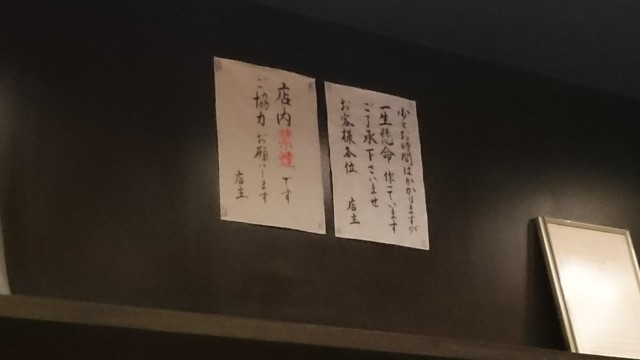 少々お時間はかかりますが
一生懸命 作っています
ご了承下さいませ
お客様各位 店主
店内禁煙です
ご協力お願いします
店主